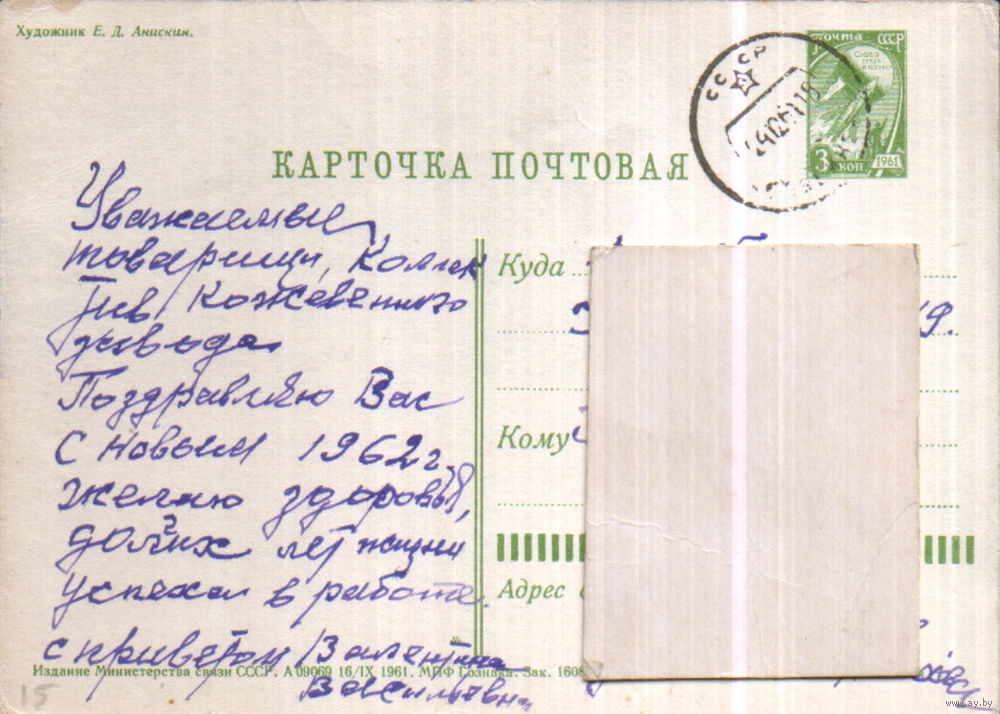 Художник Е. Д. Анискин.
СССР
почта СССР
3 коп 1961
КАРТОЧКА ПОЧТОВАЯ
Уважаемые
товарищи, Коллек
тив Кожевенного
завода
Поздравляю Вас
с новым 1962 г,
желаю здоровья,
долгих лет жизни
успехов в работе.
с приветом Валентина
Васильевна
Куда
9.
Кому
Адрес
Издание Министерства связи СССР. А 09069 16/IX 1961. МПФ Гознака. Зак. 1608
15
www.ay.by